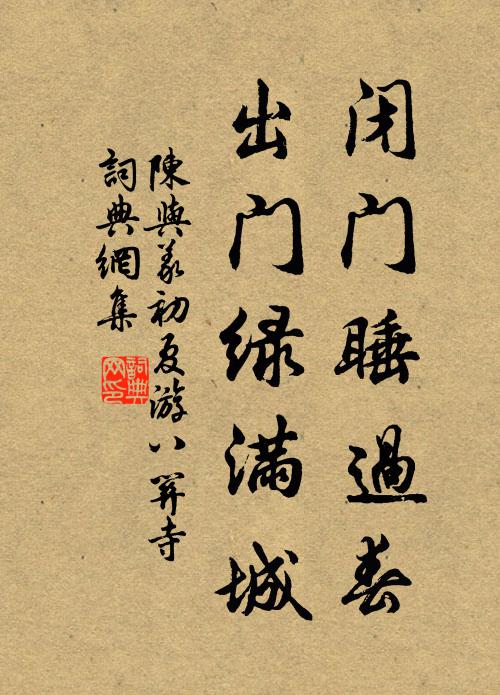 闭门睡過春
出门绿滿城
陳與义初夏游八關寺
詞典網集
詞典网印